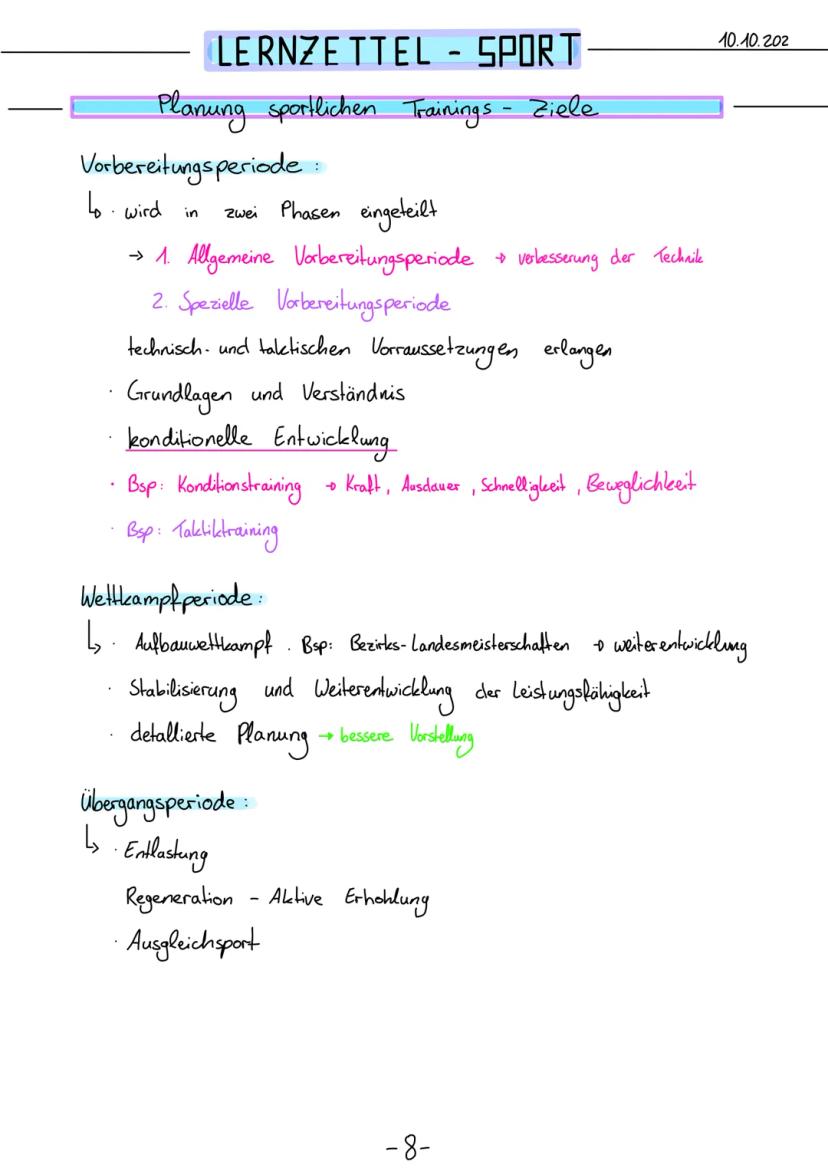 LERNZETTEL - SPORT
10.10.202
Planung sportlichen Trainings - Ziele
Vorbereitungsperiode :
↳ · wird in zwei Phasen eingeteilt
→ 1. Allgemeine Vorbereitungsperiode → verbesserung der Technik
2. Spezielle Vorbereitungsperiode
technisch- und taktischen Vorraussetzungen erlangen
· Grundlagen und Verständnis
· konditionelle Entwicklung
· Bsp: Konditionstraining → Kraft, Ausdauer, Schnelligkeit, Beweglichkeit
· Bsp: Taktiktraining
Wettkampfperiode :
↳ · Aufbauwettkampf . Bsp: Bezirks-Landesmeisterschaften → weiterentwicklung
· Stabilisierung und Weiterentwicklung der Leistungsfähigkeit
· detallierte Planung → bessere Vorstellung
Übergangsperiode :
↳ · Entlastung
Regeneration - Aktive Erhohlung
· Ausgleichsport
-8-